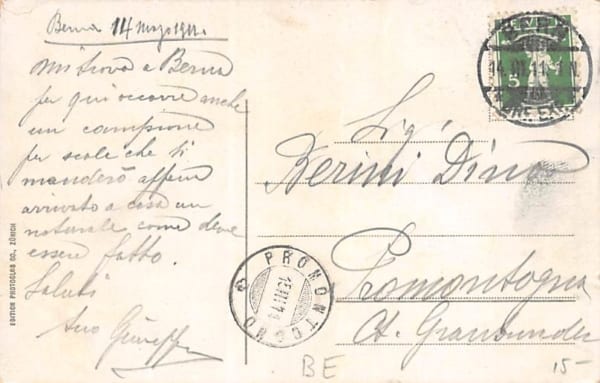 Berna 14 Marzo 1911.
Mi trovo a Berna
per qui occorre anche
un campione
per scole che ti
manderò appena
arrivato a casa un
naturale come deve
essere fatto.
Saluti
Giuseppe
EDITION PHOTOGLOB CO., ZÜRICH
BERN
14.III.11.
5
Sig.
Berini Dino
Promontogno
Ct. Graubünden
PROMONTOGNO
15.III.11
BE
15-